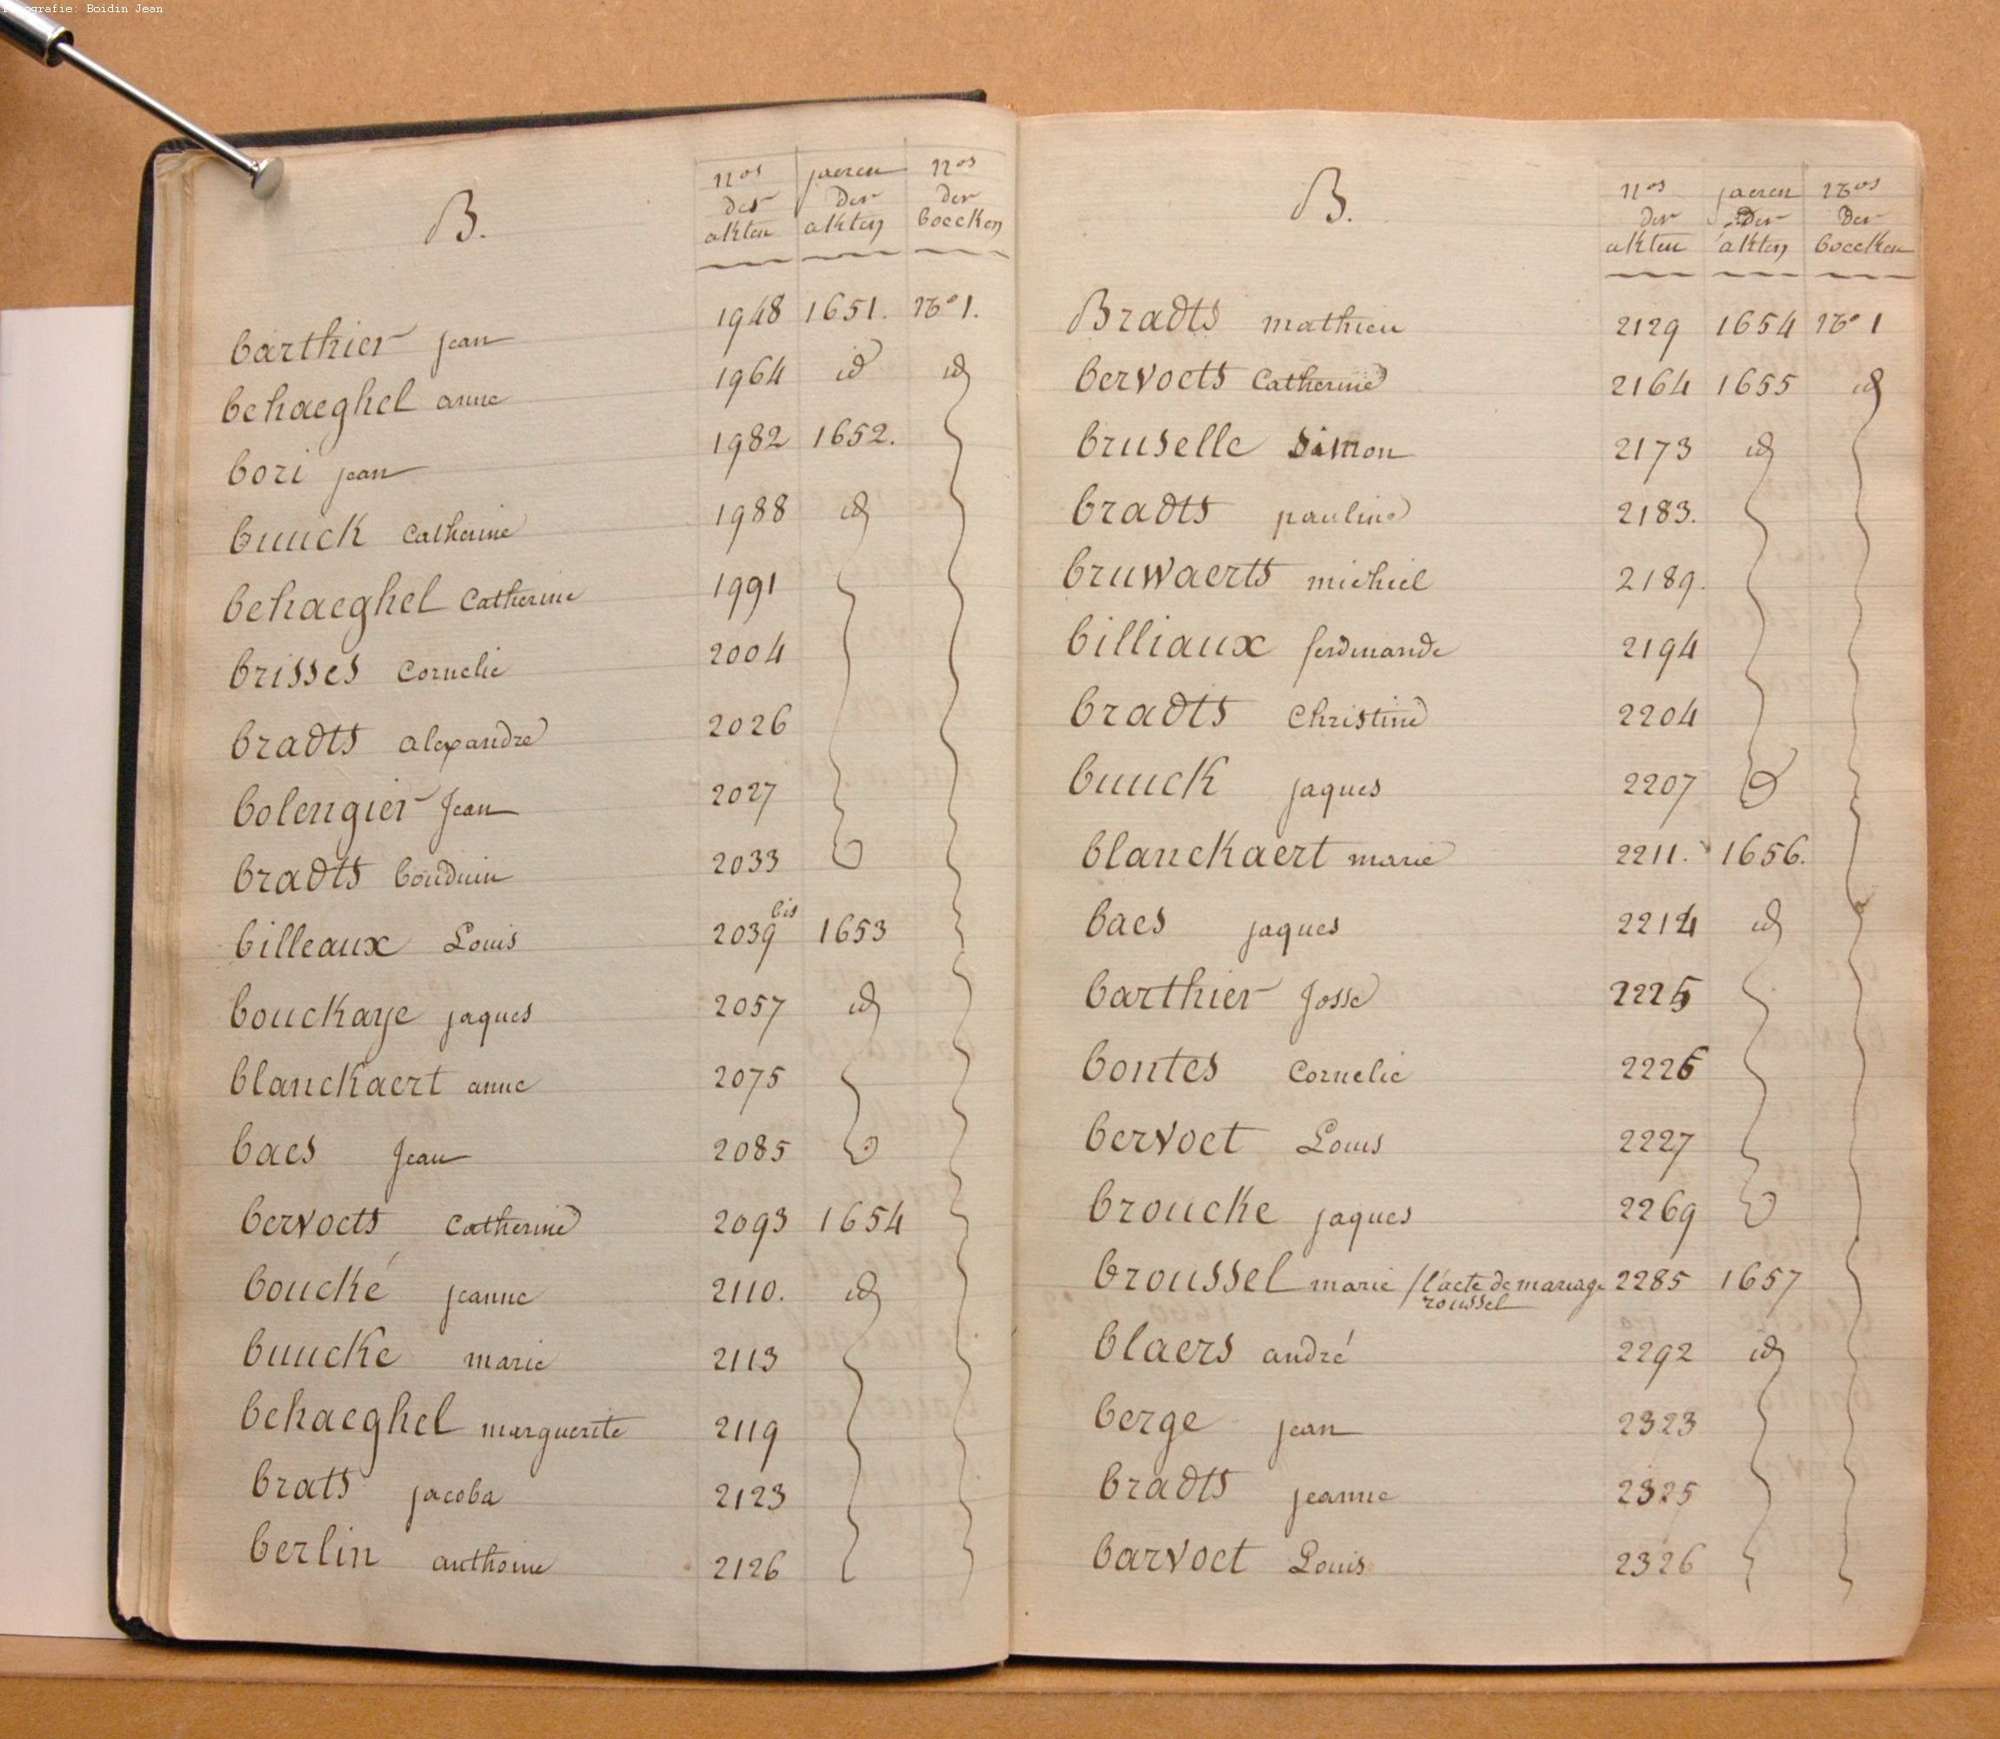 Fotografie: Boidin Jean
B.
nos der akten
jaeren der akten
nos der boecken
barthier jean 1948 1651. No 1.
behaeghel anne 1964 id id
bori jean 1982 1652.
buuck Catherine 1988 id
behaeghel Catherine 1991
brisses Cornelie 2004
bradts alexandre 2026
bolengier Jean 2027
bradts bouduin 2033
billeaux Louis 2039 bis 1653
bouckaye jaques 2057 id
blanckaert anne 2075
baes Jean 2085
bervoets Catherine 2093 1654
boucké jeanne 2110. id
buucke marie 2113
behaeghel marguerite 2119
brats jacoba 2123
berlin anthoine 2126
B.
nos der akten
jaeren der akten
Nos der boecken
Bradts mathieu 2129 1654 No 1
bervoets Catherine 2164 1655 id
bruselle Simon 2173 id
bradts pauline 2183.
bruwaerts michiel 2189.
billiaux ferdinande 2194
bradts Christine 2204
buuck jaques 2207
blanckaert marie 2211. 1656.
baes jaques 2214 id
barthier Josse 2225
bontes Cornelie 2226
bervoet Louis 2227
broucke jaques 2269
broussel marie /l'acte de mariage 2285 1657
roussel
blaers andré 2292 id
berge jean 2323
bradts jeanne 2325
barvoet Louis 2326